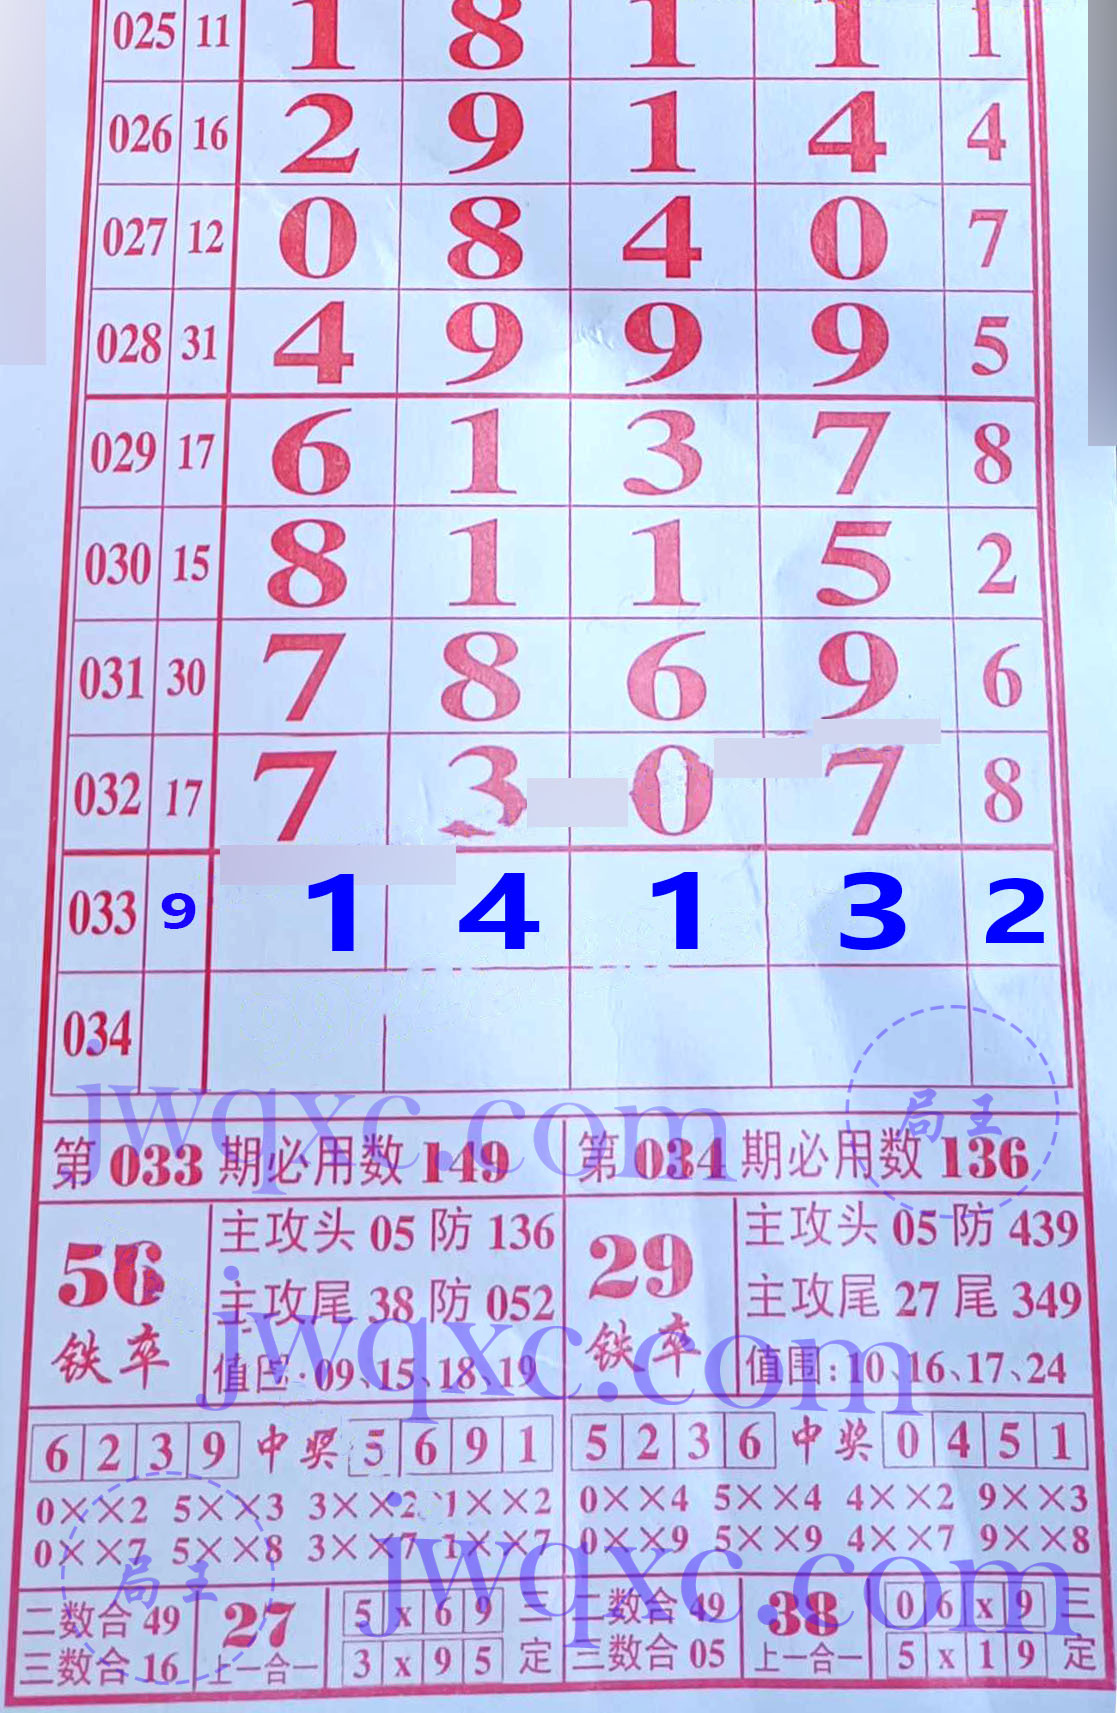 025 11 1 8 1 1 1
026 16 2 9 1 4 4
027 12 0 8 4 0 7
028 31 4 9 9 9 5
029 17 6 1 3 7 8
030 15 8 1 1 5 2
031 30 7 8 6 9 6
032 17 7 3 0 7 8
033 9 1 4 1 3 2
034
jwqxc.com
局王
第033期必用数149
第034期必用数136
56
铁卒
主攻头05防136
主攻尾38防052
值围:09、15、18、19
29
铁卒
主攻头05防439
主攻尾27尾349
值围:10、16、17、24
jwqxc.com
6239中奖5691
5236中奖0451
0××2 5××3 3××2 1××2
0××7 5××8 3××7 1××7
0××4 5××4 4××2 9××3
0××9 5××9 4××7 9××8
jwqxc.com
局王
二数合49
三数合16
27
上一合一
5x69三
3x95定
二数合49
三数合05
38
上一合一
06x9三
5x19定